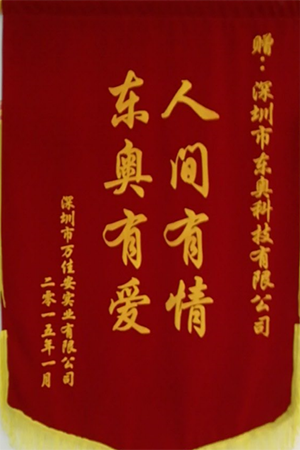 赠：深圳市东奥科技有限公司
人间有情
东奥有爱
深圳市万佳安实业有限公司
二零一五年一月